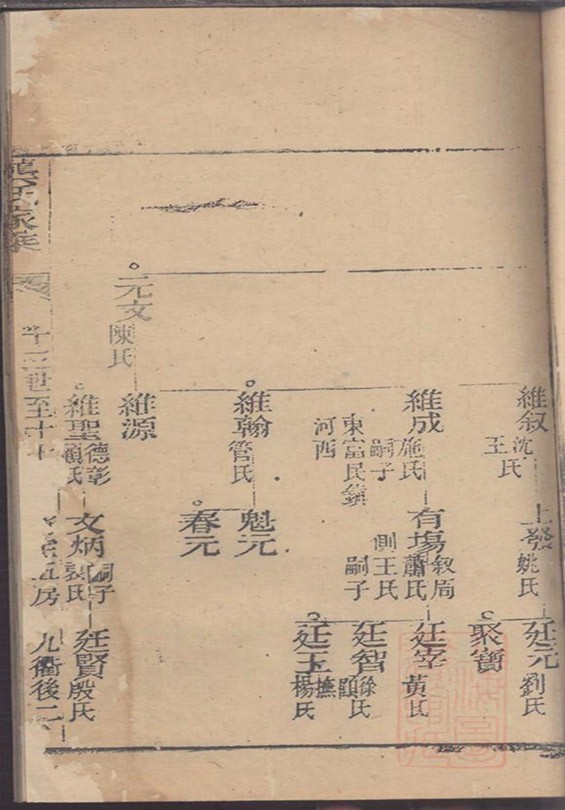 維叙 沈氏 王氏
上發 姚氏
廷元 劉氏
聚寶
維成 施氏 嗣子
東富民鎮
河西
有場 叙局 蕭氏 側王氏 嗣子
廷宰 黃氏
廷智 徐氏 顧
廷玉 撫 楊氏
維翰 管氏
魁元
春元
元文 陳氏
維源
維聖 德彰 顧氏
文炳 嗣子 郭氏
廷賢 殷氏
氏家乘
十三世至十七
五房
九衢後二